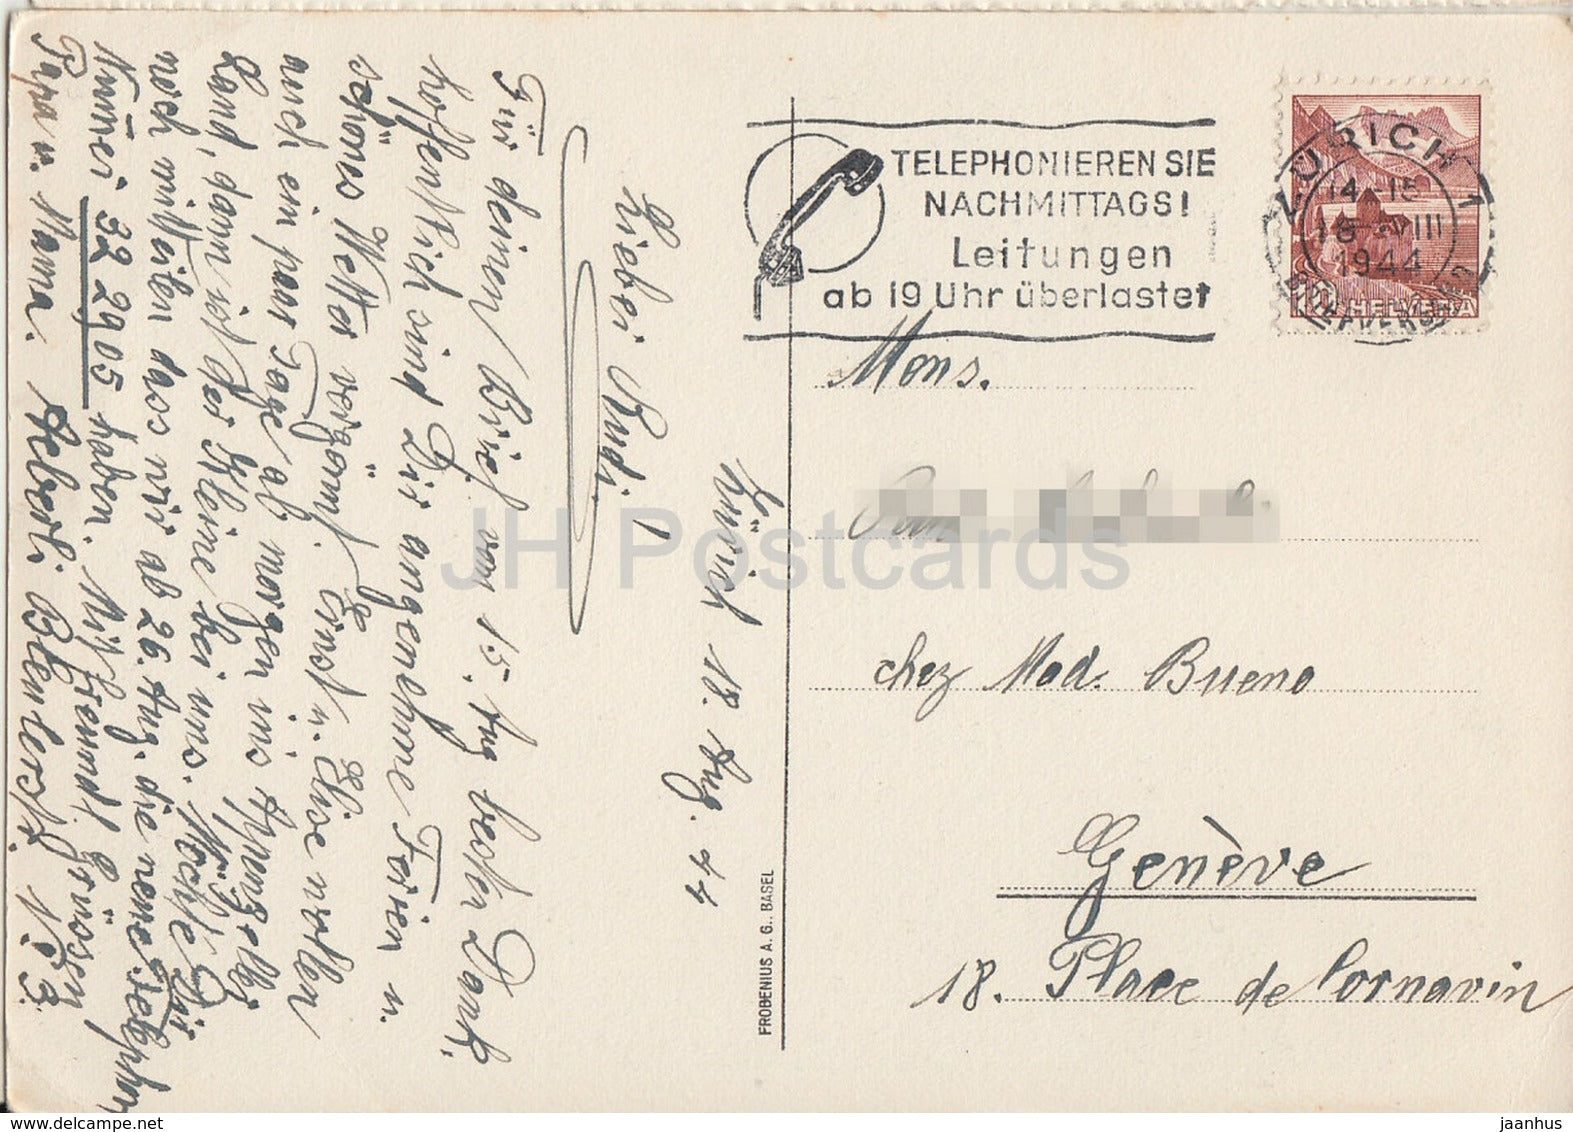 Zürich 18. Aug. 44
Lieber Rudi!
Für deinen Brief vom 15. Aug besten Dank,
hoffentlich sind Dir angenehme Ferien u.
schönes Wetter vergönnt. Ernst u. Elise wollen
auch ein paar Tage ab morgen ins Appenzeller
Land, dann ist der Kleine bei uns. Möchte Dir
noch mitteilen dass wir ab 26. Aug. die neue Telephon
Nummer 32 29 05 haben. Mit freundl. Grüssen
Papa u. Mama. Aeberli Bleulerstr. N° 3.
FROBENIUS A. G., BASEL
TELEPHONIEREN SIE
NACHMITTAGS!
Leitungen
ab 19 Uhr überlastet
ZÜRICH 1
14-15
18 VIII
1944
BRIEFVERSAND
10 HELVETIA
Mons.
chez Mad. Bueno
Genève
18. Place de Cornavin
JH Postcards
jaanhus @ www.delcampe.net